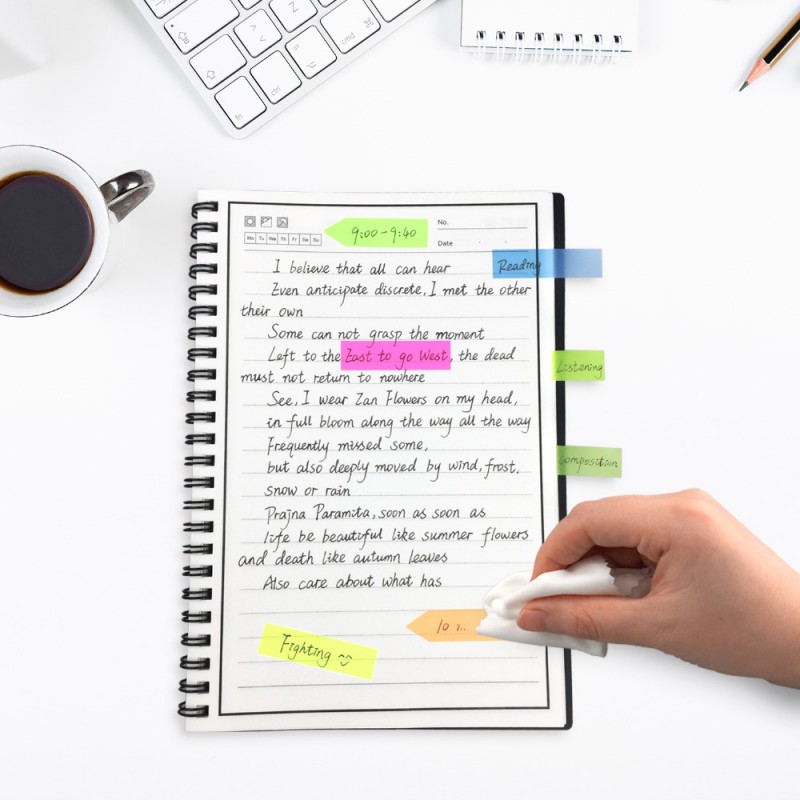 fn
ctrl
cmd ⌘
Z
Mo Tu We Th Fr Sa Su
9:00-9:40
No.
Date
Reading
I believe that all can hear
Even anticipate discrete, I met the other
their own
Some can not grasp the moment
Left to the East to go West, the dead
must not return to nowhere
Listening
See, I wear Zan Flowers on my head,
in full bloom along the way all the way
Frequently missed some,
but also deeply moved by wind, frost,
composition
snow or rain
Prajna Paramita, soon as soon as
life be beautiful like summer flowers
and death like autumn leaves
Also care about what has
10
Fighting